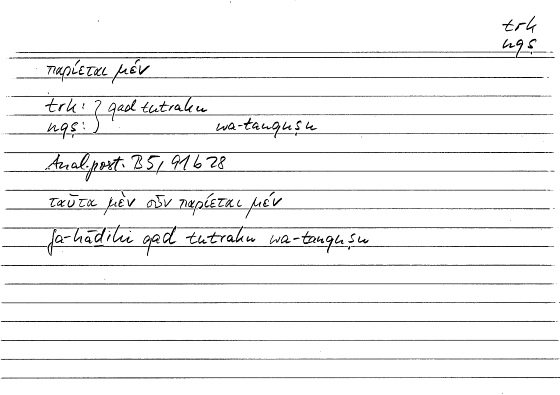 trk
nqṣ
παρίεται μέν
trk: } qad tutraku
nqṣ: } wa-tanquṣu
Anal. post. B 5, 91 b 28
ταῦτα μὲν οὖν παρίεται μέν
fa-hāḏihi qad tutraku wa-tanquṣu